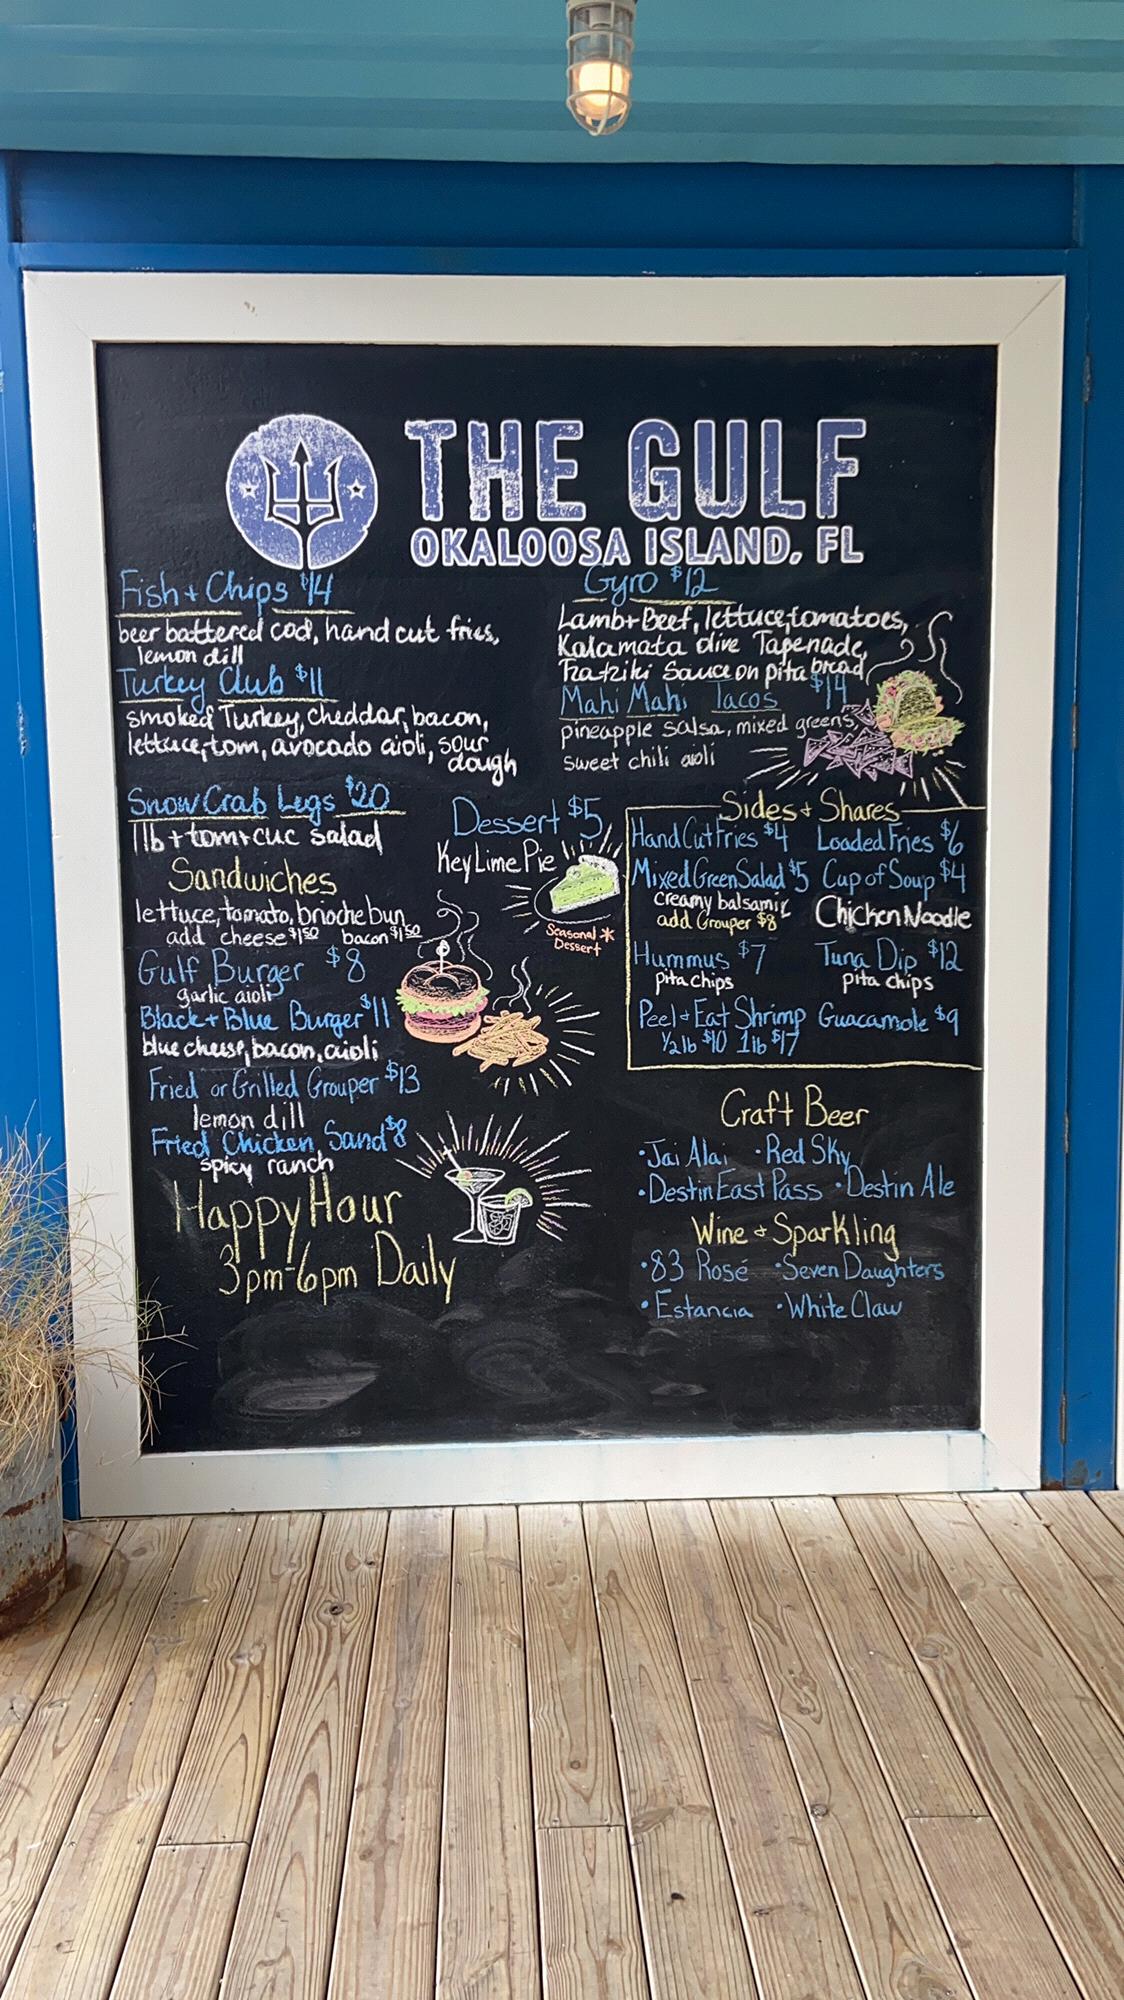 THE GULF
OKALOOSA ISLAND, FL
Fish + Chips $14
beer battered cod, hand cut fries,
lemon dill
Turkey Club $11
smoked Turkey, cheddar, bacon,
lettuce, tom, avocado aioli, sour
dough
Snow Crab Legs $20
1lb + tom + cuc salad
Sandwiches
lettuce, tomato, brioche bun
add cheese $1.50 bacon $1.50
Gulf Burger $8
garlic aioli
Black + Blue Burger $11
blue cheese, bacon, aioli
Fried or Grilled Grouper $13
lemon dill
Fried Chicken Sand $8
spicy ranch
Happy Hour
3pm-6pm Daily
Gyro $12
Lamb + Beef, lettuce, tomatoes,
Kalamata olive Tapenade,
Tzatziki Sauce on pita bread
Mahi Mahi Tacos $14
pineapple salsa, mixed greens
sweet chili aioli
Dessert $5
Key Lime Pie
Seasonal *
Dessert
Sides + Shares
Hand Cut Fries $4 Loaded Fries $6
Mixed Green Salad $5 Cup of Soup $4
creamy balsamic Chicken Noodle
add Grouper $8
Hummus $7 Tuna Dip $12
pita chips pita chips
Peel + Eat Shrimp Guacamole $9
1/2 lb $10 1 lb $17
Craft Beer
• Jai Alai • Red Sky
• Destin East Pass • Destin Ale
Wine + Sparkling
• 83 Rosé • Seven Daughters
• Estancia • White Claw